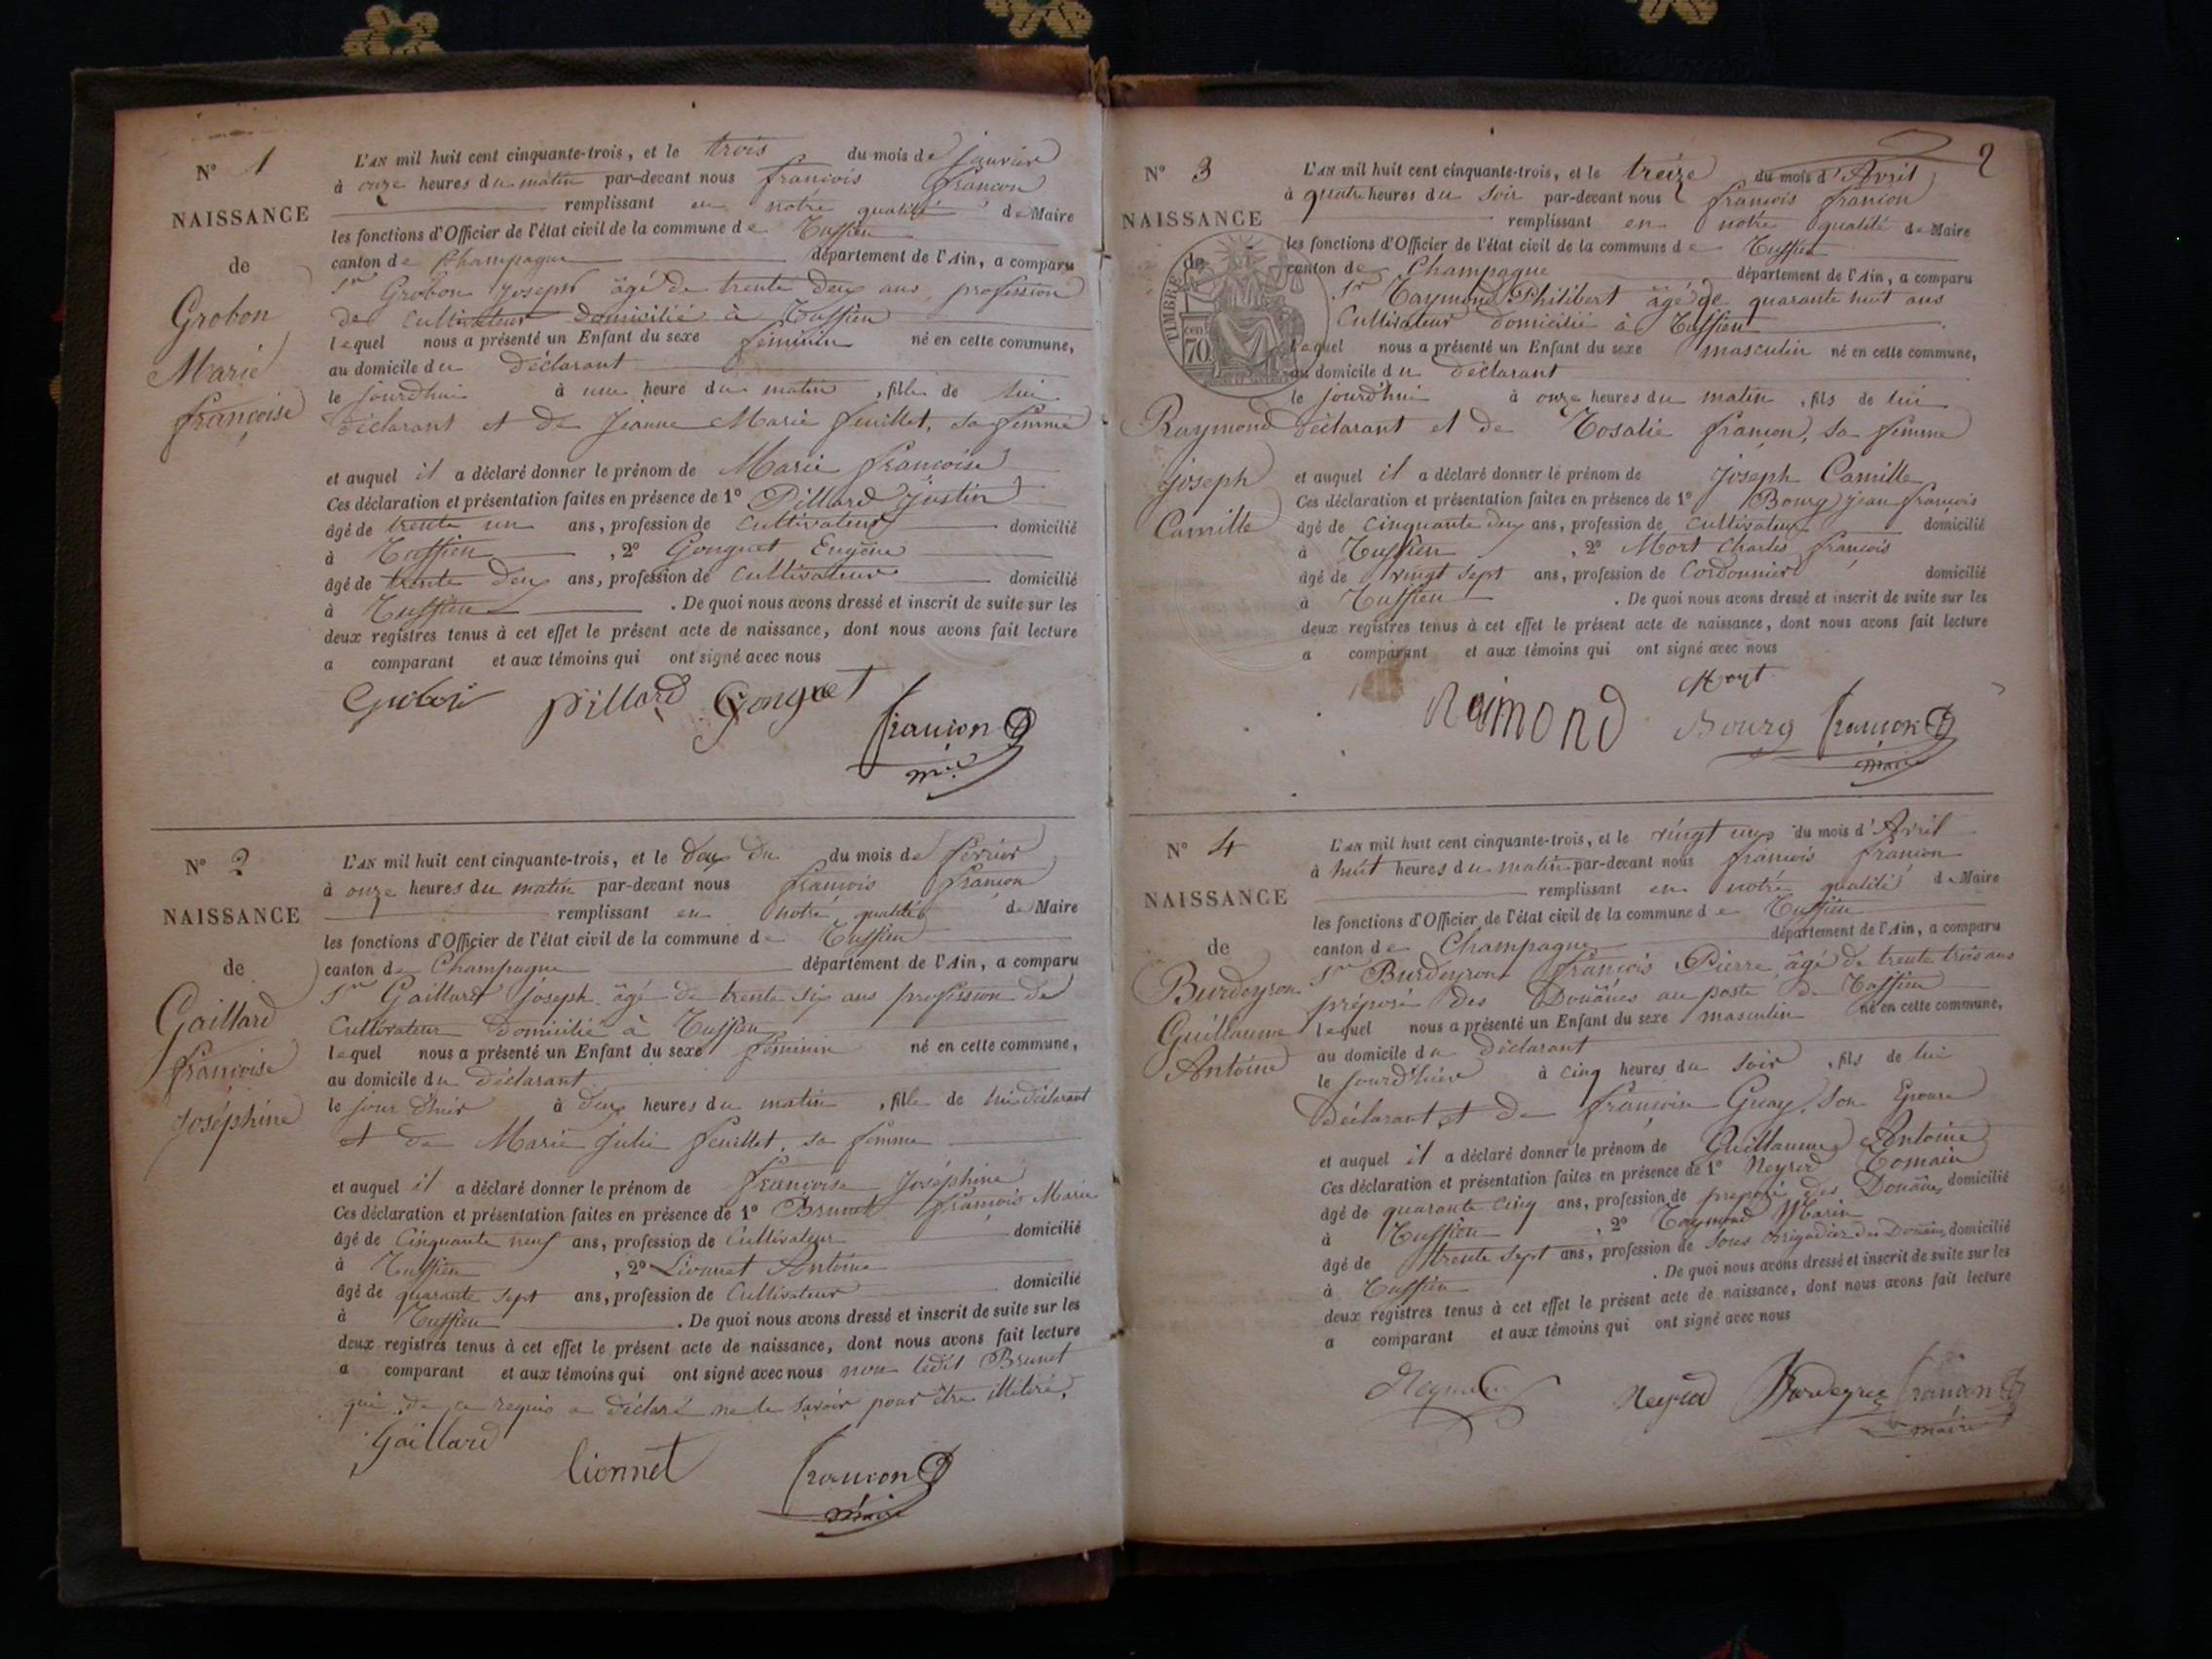 N° 1
NAISSANCE
de
Grobon
Marie
françoise
L'AN mil huit cent cinquante-trois, et le trois du mois de janvier
à onze heures du matin par-devant nous françois françon
remplissant en notre qualité de Maire
les fonctions d'Officier de l'état civil de la commune de Ruffieu
canton de Champagne département de l'Ain, a comparu
Sr Grobon Joseph âgé de trente deux ans, profession
de cultivateur domicilié à Ruffieu
lequel nous a présenté un Enfant du sexe féminin né en cette commune,
au domicile du déclarant
le jourd'hui à une heure du matin, fille de lui
déclarant et de Jeanne Marie feuillet, sa femme
et auquel il a déclaré donner le prénom de Marie françoise
Ces déclaration et présentation faites en présence de 1° Pillard Justin
âgé de trente un ans, profession de cultivateur domicilié
à Ruffieu, 2° Gonguet Eugène
âgé de trente deux ans, profession de cultivateur domicilié
à Ruffieu. De quoi nous avons dressé et inscrit de suite sur les
deux registres tenus à cet effet le présent acte de naissance, dont nous avons fait lecture
a comparant et aux témoins qui ont signé avec nous
Grobon pillard Gonguet
françon
N° 2
NAISSANCE
de
Gaillard
françoise
Joséphine
L'AN mil huit cent cinquante-trois, et le deux du du mois de février
à onze heures du matin par-devant nous françois françon
remplissant en notre qualité de Maire
les fonctions d'Officier de l'état civil de la commune de Ruffieu
canton de Champagne département de l'Ain, a comparu
Sr Gaillard Joseph âgé de trente six ans profession de
cultivateur domicilié à Ruffieu
lequel nous a présenté un Enfant du sexe féminin né en cette commune,
au domicile du déclarant
le jour d'hier à deux heures du matin, fille de lui déclarant
et de Marie Julie feuillet, sa femme
et auquel il a déclaré donner le prénom de françoise Joséphine
Ces déclaration et présentation faites en présence de 1° Brunet françois Marie
âgé de cinquante neuf ans, profession de cultivateur domicilié
à Ruffieu, 2° Lionnet Antoine
âgé de quarante sept ans, profession de cultivateur domicilié
à Ruffieu. De quoi nous avons dressé et inscrit de suite sur les
deux registres tenus à cet effet le présent acte de naissance, dont nous avons fait lecture
a comparant et aux témoins qui ont signé avec nous non ledit Brunet
qui de ce requis a déclaré ne le savoir pour être illitéré.
Gaillard
lionnet françon
maire
2
N° 3
NAISSANCE
de
TIMBRE
cent
70
Raymond
joseph
Camille
L'AN mil huit cent cinquante-trois, et le treize du mois d'Avril
à quatre heures du soir par-devant nous françois françon
remplissant en notre qualité de Maire
les fonctions d'Officier de l'état civil de la commune de Ruffieu
canton de Champagne département de l'Ain, a comparu
Sr Raymond Philibert âgé de quarante huit ans
cultivateur domicilié à Ruffieu
lequel nous a présenté un Enfant du sexe masculin né en cette commune,
au domicile du déclarant
le jourd'hui à onze heures du matin, fils de lui
déclarant et de Rosalie françon, sa femme
et auquel il a déclaré donner le prénom de joseph Camille
Ces déclaration et présentation faites en présence de 1° Bourg jean françois
âgé de cinquante deux ans, profession de cultivateur domicilié
à Ruffieu, 2° Mort Charles françois
âgé de vingt sept ans, profession de Cordonnier domicilié
à Ruffieu. De quoi nous avons dressé et inscrit de suite sur les
deux registres tenus à cet effet le présent acte de naissance, dont nous avons fait lecture
a comparant et aux témoins qui ont signé avec nous
Mort
Raimond Bourg françon
maire
N° 4
NAISSANCE
de
Burdeyron
Guillaume
Antoine
L'AN mil huit cent cinquante-trois, et le vingt un du mois d'Avril
à huit heures du matin par-devant nous françois françon
remplissant en notre qualité de Maire
les fonctions d'Officier de l'état civil de la commune de Ruffieu
canton de Champagne département de l'Ain, a comparu
Sr Burdeyron françois Pierre, âgé de trente trois ans
préposé des Douânes au poste de Ruffieu
lequel nous a présenté un Enfant du sexe masculin né en cette commune,
au domicile du déclarant
le jourd'hier à cinq heures du soir, fils de lui
déclarant et de françoise Guay, son Epouse
et auquel il a déclaré donner le prénom de Guillaume Antoine
Ces déclaration et présentation faites en présence de 1° Neyrod Romain
âgé de quarante cinq ans, profession de preposé des Douânes domicilié
à Ruffieu, 2° Raymond Marin
âgé de trente sept ans, profession de Sous Brigadier des Douânes domicilié
à Ruffieu. De quoi nous avons dressé et inscrit de suite sur les
deux registres tenus à cet effet le présent acte de naissance, dont nous avons fait lecture
a comparant et aux témoins qui ont signé avec nous
Neyrod françon
maire